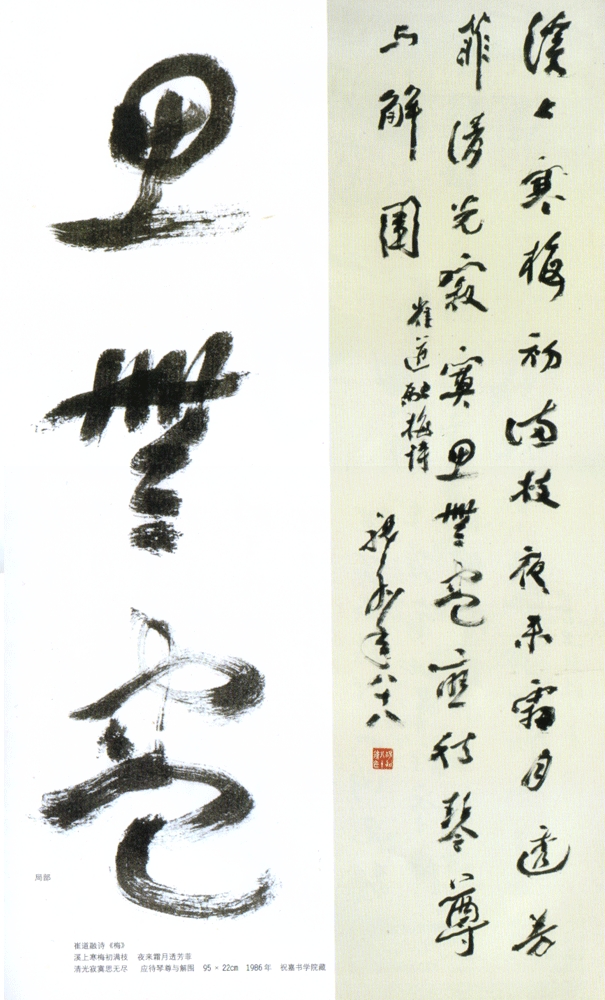 溪上寒梅初满枝夜来霜月透芳
菲清光寂寞思無盡應待琴尊
与解圍
崔道融梅詩
祝嘉年八十八
思
無
盡
局部
崔道融诗《梅》
溪上寒梅初满枝 夜来霜月透芳菲
清光寂寞思无尽 应待琴尊与解围 95 × 22cm 1986年 祝嘉书学院藏